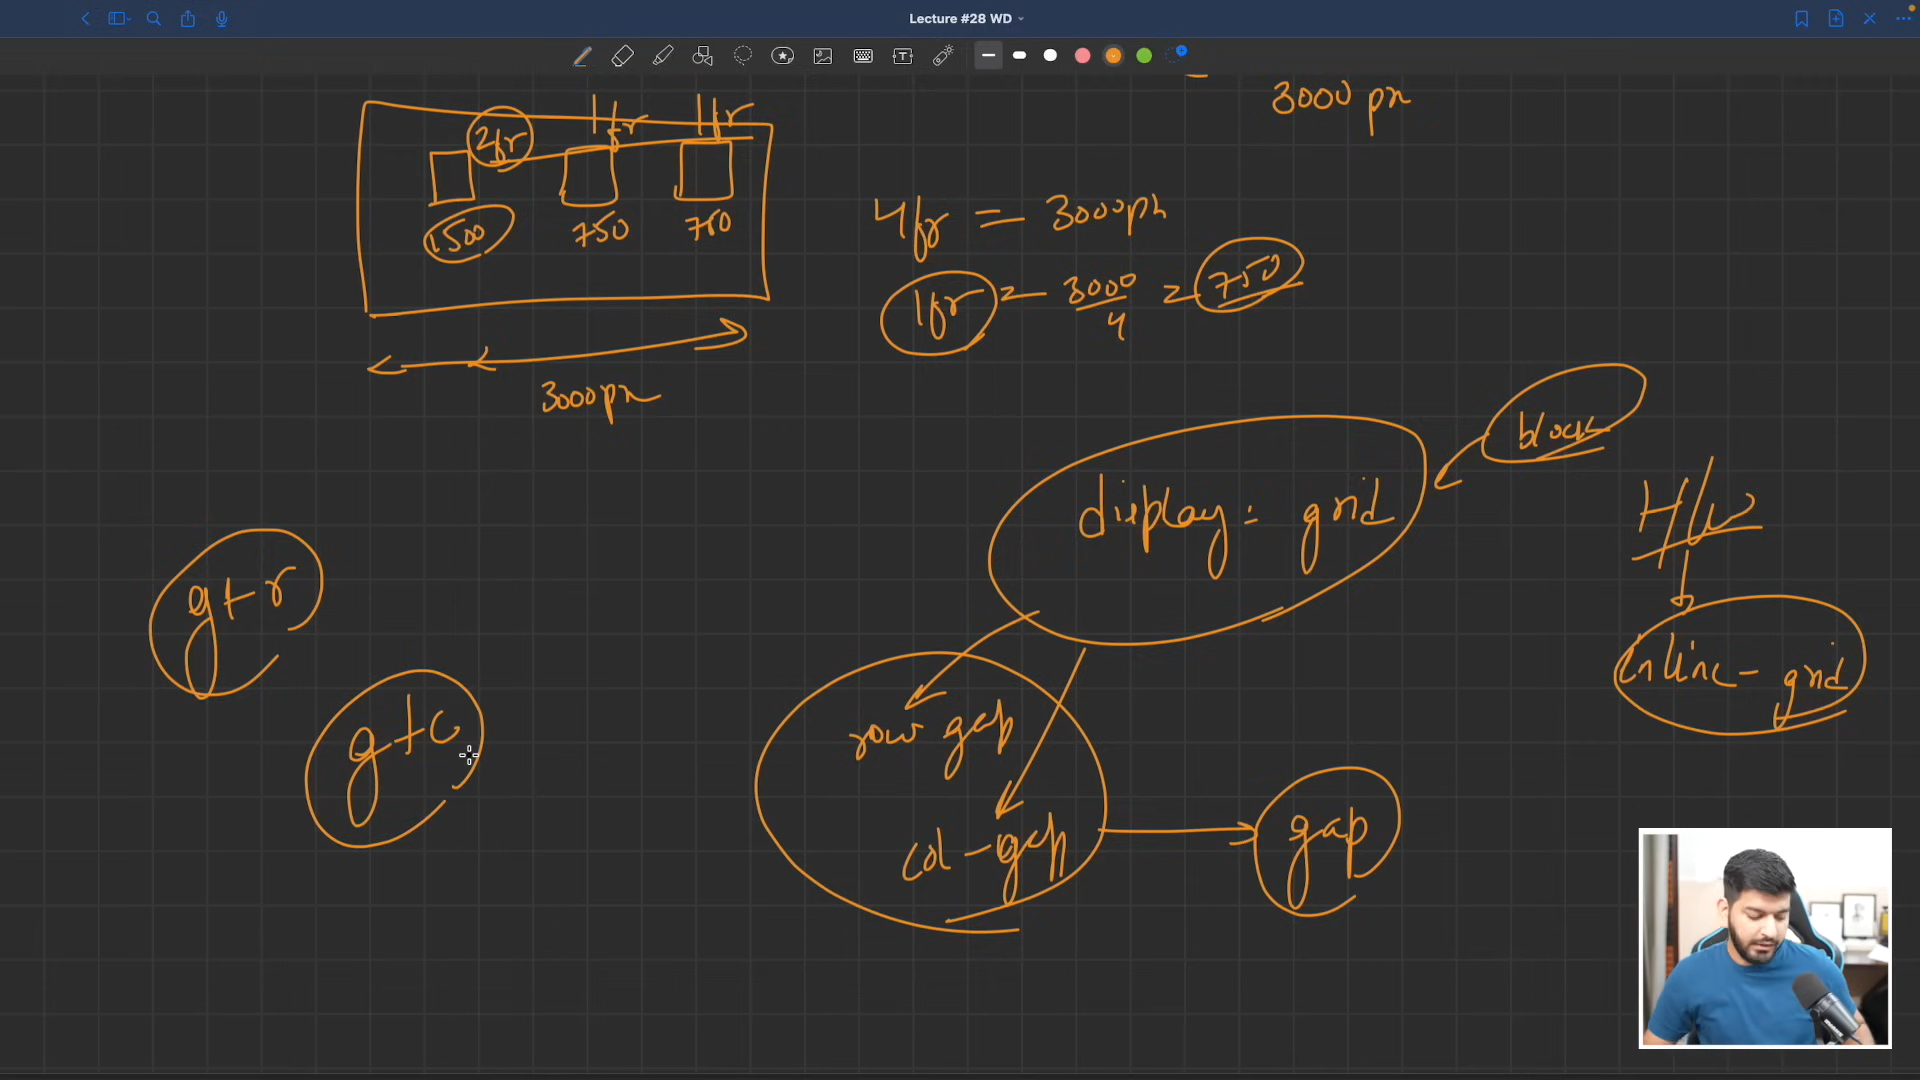 Lecture #28 WD
3000 px
2fr 1fr 1fr
1500 750 750
3000px
4fr = 3000px
1fr = 3000/4 = 750
block
display: grid
H/W
inline-grid
gtr
gtc
row gap
col-gap
gap